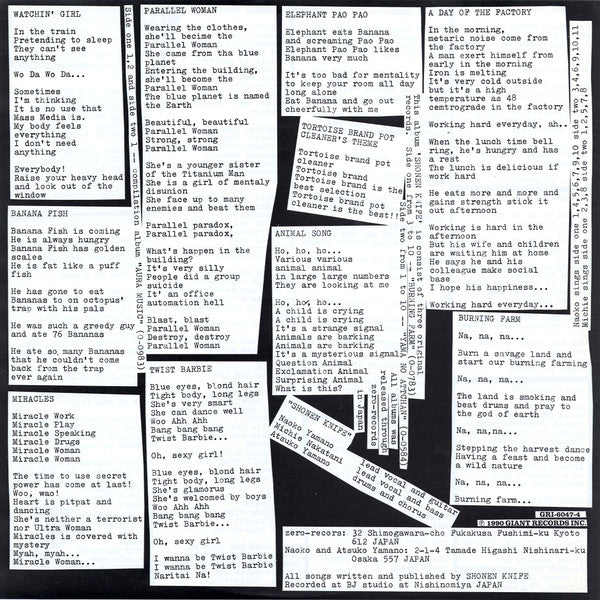 WATCHIN' GIRL
In the train
Pretending to sleep
They can't see
anything
Wo Da Wo Da...
Sometimes
I'm thinking
It is no use that
Mass Media is.
My body feels
everything
I don't need
anything
Everybody!
Raise your heavy head
and look out of the
window
BANANA FISH
Banana Fish is coming
He is always hungry
Banana Fish has golden
scales
He is fat like a puff
fish
He has gone to eat
Bananas to on octopus'
trap with his pals
He was such a greedy guy
and ate 76 Bananas
He ate so many Bananas
that he couldn't come
back from the trap
ever again
MIRACLES
Miracle Work
Miracle Play
Miracle Speaking
Miracle Drugs
Miracle Woman
Miracle Woman
The time to use secret
power has come at last!
Woo, wao!
Heart is pitpat and
dancing
She's neither a terrorist
nor Ultra Woman
Miracles is covered with
mystery
Myah, myah...
Miracle Woman...
Side one 1,2 and side two 1 -- compilation album "AURA MUSIC" (0-0983)
PARALLEL WOMAN
Wearing the clothes,
she'll becime the
Parallel Woman
She came from tha blue
planet
Entering the building,
she'll become the
Parallel Woman
The blue planet is named
the Earth
Beautiful, beautiful
Parallel Woman
Strong, strong
Parallel Woman
She's a younger sister
of the Titanium Man
She is a girl of mentaly
disunion
She face up to many
enemies and beat them
Parallel paradox,
Parallel paradox,
What's happen in the
building?
It's very silly
People did a group
suicide
It' an office
automation hell
Blast, blast
Parallel Woman
Destroy, destroy
Parallel Woman
TWIST BARBIE
Blue eyes, blond hair
Tight body, long legs
She's very smart
She can dance well
Woo Ahh Ahh
Bang bang bang
Twist Barbie...
Oh, sexy girl!
Blue eyes, blond hair
Tight body, long legs
She's glamorus
She's welcomed by boys
Woo Ahh Ahh
Bang bang bang
Twist Barbie...
Oh, sexy girl
I wanna be Twist Barbie
I wanna be Twist Barbie
Naritai Na!
ELEPHANT PAO PAO
Elephant eats Banana
and screaming Pao Pao
Elephant Pao Pao likes
Banana very much
It's too bad for mentality
to keep your room all day
long alone
Eat Banana and go out
cheerfully with me
TORTOISE BRAND POT
CLEANER'S THEME
Tortoise brand pot
cleaner
Tortoise brand
Tortoise brand is the
best selection
Tortoise brand pot
cleaner is the best!!
ANIMAL SONG
Ho, ho, ho...
Various various
animal animal
in large large numbers
They are looking at me
Ho, ho, ho...
A child is crying
A child is crying
It's a strange signal
Animals are barking
Animals are barking
It's a mysterious signal
Question Animal
Exclamation Animal
Surprising Animal
What is this?
This album 'SHONEN KNIFE' is consist of three original
records. Side one from 3 to 10 -- "BURNING FARM" (0-0783)
Side two from 2 to 10 -- "YAMA NO ATTCHAN" (0-0584)
All albums was
released through
zero-records
in Japan
"SHONEN KNIFE"
Naoko Yamano lead vocal and guitar
Michie Nakatani lead vocal and bass
Atsuko Yamano drums and chorus
A DAY OF THE FACTORY
In the morning,
metaric noise come from
the factory
A man exert himself from
early in the morning
Iron is melting
It's very cold outside
but it's a high
temperature as 48
centrograde in the factory
Working hard everyday, ah..
When the lunch time bell
ring, he's hungry and has
a rest
The lunch is delicious if
work hard
He eats more and more and
gains strength stick it
out afternoon
Working is hard in the
afternoon
But his wife and children
are waiting him at home
He says he and his
colleague make social
base
I hope his happiness...
Working hard everyday...
Naoko sings side one 1,4,5,6,7,9,10 side two 3,4,6,9,10,11
Michie sings side one 2,3,8 side two 1,2,5,7,8
BURNING FARM
Na, na, na...
Burn a savage land and
start our burning farming
Na, na, na...
The land is smoking and
beat drums and pray to
the god of earth
Na, na,na...
Stepping the harvest dance
Having a feast and become
a wild nature
Na, na, na...
Burning farm...
GRI-6047-4
℗ 1990 GIANT RECORDS INC.
zero-records: 32 Shimogawara-cho Fukakusa Fushimi-ku Kyoto
612 JAPAN
Naoko and Atsuko Yamano: 2-1-4 Tamade Higashi Nishinari-ku
Osaka 557 JAPAN
All songs written and published by SHONEN KNIFE
Recorded at BJ studio at Nishinomiya JAPAN